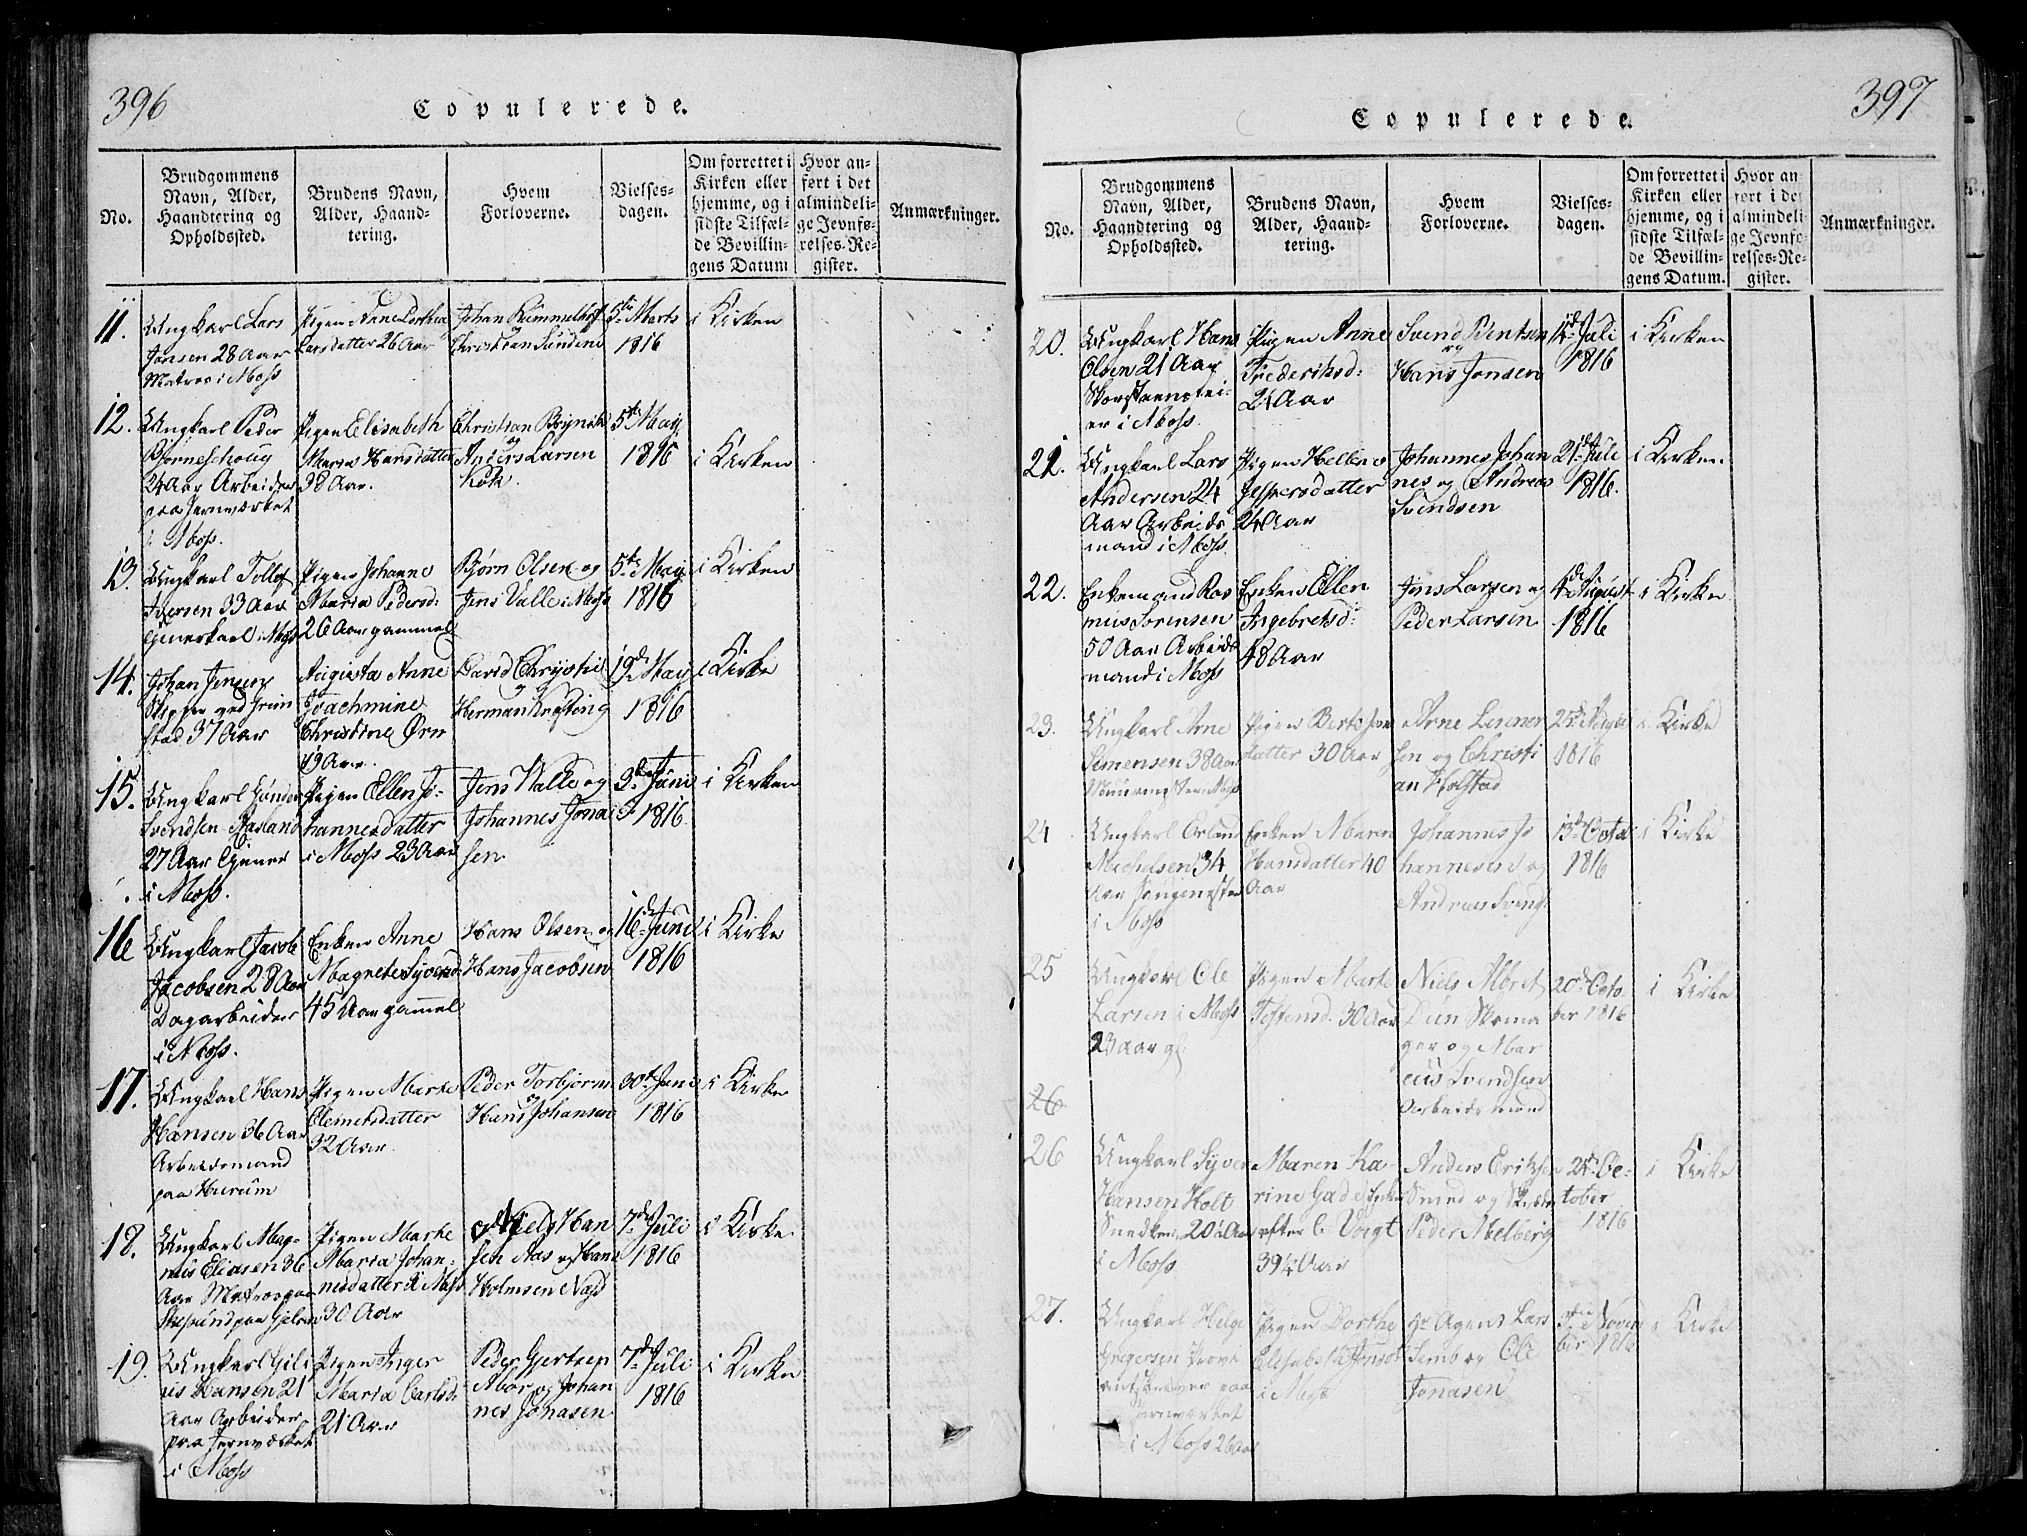 396
Copulerede.
No.
Brudgommens Navn, Alder, Haandtering og Opholdssted.
Brudens Navn, Alder, Haandtering.
Hvem Forloverne.
Vielses-dagen.
Om forrettet i Kirken eller hjemme, og i sidste Tilfælde Bevillingens Datum
Hvor anført i det almindelige Jevnførelses-Register.
Anmærkninger.
11. Ungkarl Lars Jensen 28 Aar Matros i Moss
Pigen Anne Dorthea Larsdatter 26 Aar
Johan Rimmelhof Christian Sundene
5te Marts 1816
i Kirken
12. Ungkarl Peder Bjørneschoug 24 Aar Arbeider paa Jernværket i Moss.
Pigen Elisabeth Maria Hansdatter 38 Aar.
Christian og Anders Larsen Kok.
5te May 1816
i Kirken
13. Ungkarl Tollof Iversen 33 Aar i Moss
Pigen Johanne Maria Pedersd: 26 Aar gammel
Bjørn Olsen og Jens Valle i Moss
5te May 1816
i Kirken
14. Johan Jensen Skipper ved Grimstad 37 Aar
Augusta Anne Joachmine Christine Ørn 19 Aar.
David Chrystie og Herman Krefting
19de May 1816
i Kirke
15. Ungkarl Gunder Svendsen Aasland 27 Aar i Moss.
Pigen Ellen Johannesdatter i Moss 23 Aar
Jens Walle og Johannes Jonasen
3de Juni 1816
i Kirken
16 Ungkarl Jacob Jacobsen 28 Aar Dagarbeider i Moss.
Enken Anne Magrete Syversd: 45 Aar gammel
Hans Olsen og Hans Jacobsen
16de Juni 1816
i Kirke
17. Ungkarl Hans Hansen 36 Aar Arbeidsmand paa
Pigen Marte Clemetsdatter 32 Aar
Peder Torbjørn og Hans Johansen
30te Juni 1816
i Kirke
18. Ungkarl Magnus Eliasen 36 Aar Matros paa
Pigen Marthe Maria Johannesdatter i Moss 30 Aar
Niels Hansen Aas og Hans Holmsen Næss
7de Juli 1816
i Kirke
19. Ungkarl Hansen 21 Aar Arbeider paa Jernværket i Moss
Pigen Inger Maria Carlsd: 21 Aar
Peder Gjertsen Moe og Johannes Jonasen
7de Juli 1816
i Kirken
397
Copulerede.
No.
Brudgommens Navn, Alder, Haandtering og Opholdssted.
Brudens Navn, Alder, Haandtering.
Hvem Forloverne.
Vielses-dagen.
Om forrettet i Kirken eller hjemme, og i sidste Tilfælde Bevillingens Datum.
Hvor anført i det almindelige Jevnførelses-Register.
Anmærkninger.
20. Ungkarl Hans Olsen 21 Aar Skorsteensfeier i Moss.
Pigen Anne Frederiksd: 24 Aar
Svend Bentsen og Hans Jonsen
14de Juli 1816
i Kirken
21. Ungkarl Lars Andersen 24 Aar Arbeidsmand i Moss
Pigen Hellene Jespersdatter 24 Aar
Johannes Johannes og Andreas Svendsen
21de Juli 1816.
i Kirken
22. Enkemand Rasmus Sorensen 50 Aar Arbeidsmand i Moss
Enken Ellen Ingebretsd: 48 Aar
Jens Larsen og Peder Larsen
4de August 1816
i Kirke
23. Ungkarl Arne Simensen 38 Aar Muurmester i Moss
Pigen Berte Jensdatter 30 Aar
Arne og Christian Holstad
25de August 1816
i Kirke
24 Ungkarl Erland Michelsen 34 Aar i Moss
Enken Maren Hansdatter 40 Aar
Johannes Johannesen og Andreas Svends
13de Octo 1816
i Kirke
25 Ungkarl Ole Larsen i Moss 23 Aar g:
Pigen Marte Tostensd. 30 Aar
Niels Albret Duun Skomager og Marcus Svendsen Arbeidsmand
20de October 1816
i Kirke
26
26 Ungkarl Syver Hansen Holt Snedker 20 Aar i Moss
Maren Karine Gade Enke efter C. Voigt 39¼ Aar
Anders Eriksen Smed og Skredder Peder Melberg
24de October 1816
i Kirke
27. Ungkarl Helge Gregersen Proviantskriver paa Jernværket i Moss 26 Aar
Pigen Dorthe Elisabeth i Moss
Hr Agent Lars Semb og Ole Jonasen
3die November 1816
i Kirke